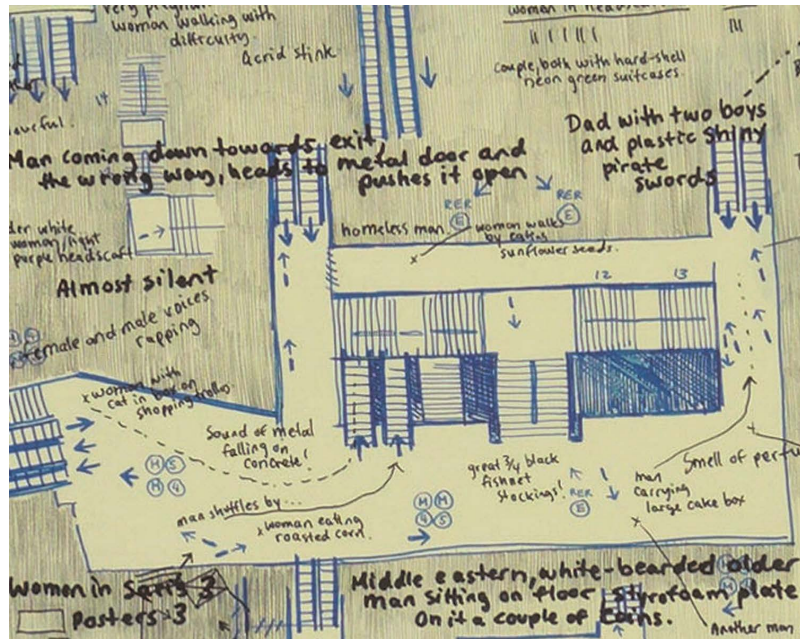 very pregnant
woman walking with
difficulty.
Acrid stink
woman in headscarf
couple, both with hard-shell
neon green suitcases.
14
Dad with two boys
and plastic shiny
pirate
swords
Man coming down towards exit,
the wrong way, heads to metal door and
pushes it open
RER
E
RER
E
homeless man.
woman walks
by eating
sunflower seeds.
white
woman, light
purple headscarf
Almost silent
12
13
female and male voices
rapping
x woman with
cat in box on
shopping trolley
Sound of metal
falling on
concrete!
M 5
M 4
great 3/4 black
fishnet
stockings!
RER
E
man
carrying
large cake box
Smell of
man shuffles by...
x woman eating
roasted corn.
M M
4 5
Women in Saris 3
Posters 3
Middle eastern, white-bearded older
man sitting on floor styrofoam plate
On it a couple of coins.
Another man